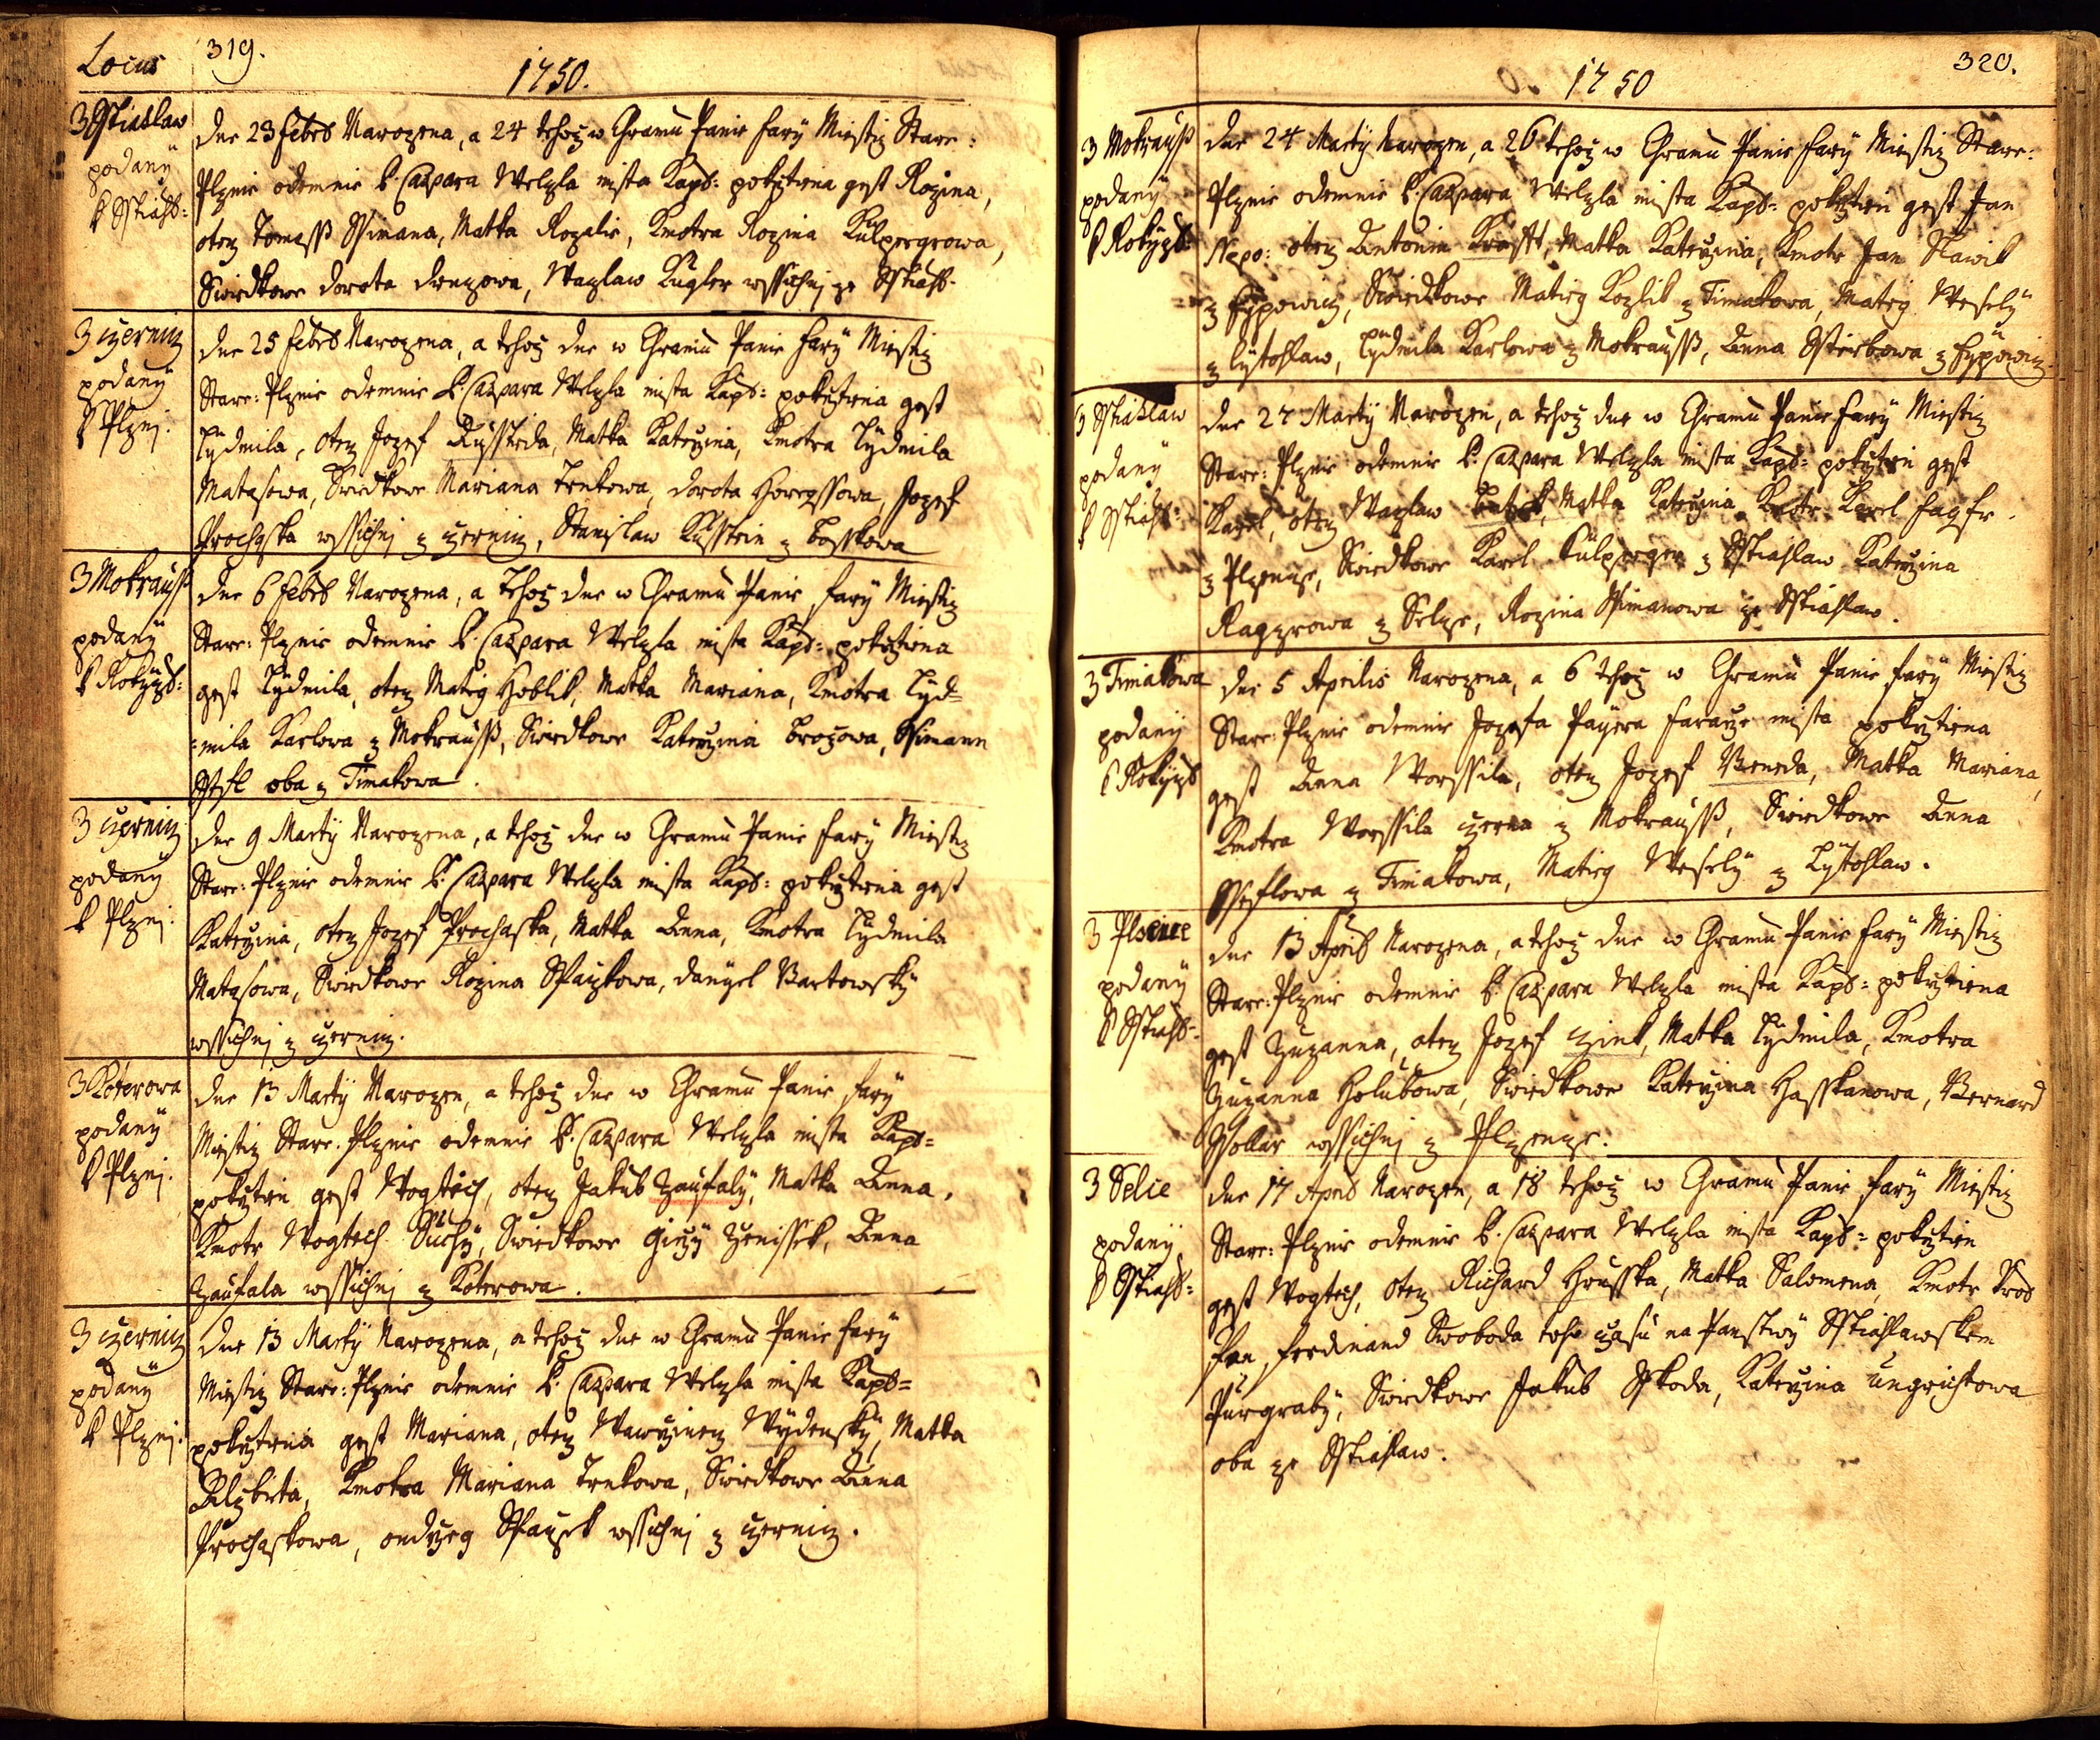 Locus 319.
1750.
Z Sstiablaw
podaný
k Sstiahl:
Dne 23 Febrs Narozena, a 24 tehoz w Chramu Panie Fary Miestiz Stare:
Plznie odemnie P. Caspara Welzla mista Kapl: pokrztiena gest Rozina,
otez Tomass Ssimana, Matka Rozalie, Kmotra Rozina Külpergrowa,
Swiedkowe Dorota, Wazlaw Kugler wssichnj ze Sstiahl.
Z Czerniz
podaný
k Plznj:
Dne 25 Febrs Narozena, a tehoz dne w Chramu Panie Fary Miestiz
Stare: Plznie odemnie P. Caspara Welzla mista Kapl: pokrztiena gest
Lydmila, otez Jozef Russtida, Matka Katerzina, Kmotra Lydmila
Matasowa, Swiedkowe Mariana Trnkowa, Dorota Horegssowa, Jozef
Prochaska wssichnj z Czerniz, Stanislaw Kusstein z Bosskowa
Z Mokrauss
podaný
k Rokyzs:
Dne 6 Febrs Narozena, a Tehoz dne w Chramu Panie Fary Miestiz
Stare: Plznie odemnie P. Caspara Welzla mista Kapl: pokrztiena
gest Lydmila, otez Matieg Hoblik, Matka Mariana, Kmotra Lyd=
=mila Karlowa z Mokrauss, Swiedkowe Katerzina Brozowa, Ssimann
oba z Timakowa.
Z Czerniz
podaný
k Plznj:
Dne 9 Martÿ Narozena, a tehoz dne w Chramu Panie Fary Miestiz
Stare: Plznie odemnie P. Caspara Welzla mista Kapl: pokrztiena gest
Katerzina, otez Jozef Prochaska, Matka Anna, Kmotra Lydmila
Matasowa, Swiedkowe Rozina Sspaczkowa, Danyel Bartowský
wssichnj z Czerniz.
Z Koterowa
podaný
k Plznj.
Dne 13 Martÿ Narozen, a tehoz dne w Chramu Panie Fary
Miestiz Stare: Plznie odemnie P. Caspara Welzla mista Kapl=
pokrztien gest Wogtiech, otez Jakub Zaufalý, Matka Anna.
Kmotr Wogtiech Suchý, Swiedkowe Girzý Zenissek, Anna
Zaufala wssichnj z Koterowa.
Z Czerniz
podaný
k Plznj:
Dne 13 Martÿ Narozena, a tehoz dne w Chramu Panie Fary
Miestiz Stare: Plznie odemnie P. Caspara Welzla mista Kapl=
pokrztiena gest Mariana, otez Wawrzinez Wýdenský, Matka
Alzbieta, Kmotra Mariana Trnkowa, Swiedkowe Anna
Prochaskowa, Ondrzeg Sspaczek wssichnj z Czerniz.
1750 320.
Z Mokrauss
podaný
k Rokyzs:
Dne 24 Martÿ Narozen, a 26 tehoz w Chramu Panie Fary Miestiz Stare:
Plznie odemnie P. Caspara Welzla mista Kapl: pokrztien gest Jan
Nepo: otez Antonin Krafft, Matka Katerzina, Kmotr Jan Slawik
z Eypowiz, Swiedkowe Matieg Kozlik z Timakowa, Matieg Weselý
z Lytohlaw, Lydmila Karlowa z Mokrauss, Anna Ssterbowa z Eypowiz.
Z Sstiahlaw
podaný
k Sstiahl:
Dne 27 Martÿ Narozen, a tehoz dne w Chramu Panie Fary Miestiz
Stare: Plznie odemnie P. Caspara Welzla mista Kapl: pokrztien gest
Karel, otez Wazlaw, Matka Katerzina, Kmotr Karel
z Plzenze, Swiedkowe Karel Külperger z Sstiahlaw Katerzina
Ragzrowa z Selze, Rozina Ssimanowa ze Sstiahlaw.
Z Timakowa
podaný
k Rokyzs
Dne 5 Aprilis Narozena, a 6 tehoz w Chramu Panie Fary Miestiz
Stare: Plznie odemnie Jozefa Payera Fararze mista pokrztiena
gest Anna Worssila, otez Jozef Beneda, Matka Mariana,
Kmotra Worssila Czerna z Mokrauss, Swiedkowe Anna
z Timakowa, Matieg Weselý z Lytohlaw.
Z Plsence
podaný
k Sstiahl=
Dne 13 Aprils Narozena, a tehoz dne w Chramu Panie Fary Miestiz
Stare: Plznie odemnie P. Caspara Welzla mista Kapl: pokrztiena
gest Zuzanna, otez Jozef Czink, Matka Lydmila, Kmotra
Zuzanna Holubowa, Swiedkowe Katerzina Hasskanowa, Bernard
wssichnj z Plzenze.
Z Selce
podaný
k Sstiahl=
Dne 17 Aprils Narozen, a 18 tehoz w Chramu Panie Fary Miestiz
Stare: Plznie odemnie P. Caspara Welzla mista Kapl: pokrztien
gest Wogtiech, otez Richard Hrusska, Matka Salomena, Kmotr
Pan Ferdinand Swoboda toho czasu na Panstwý Sstiahlawskem
Purgrabý, Swiedkowe Jakub Sskoda, Katerzina Ungrichtowa
oba ze Sstiahlaw.